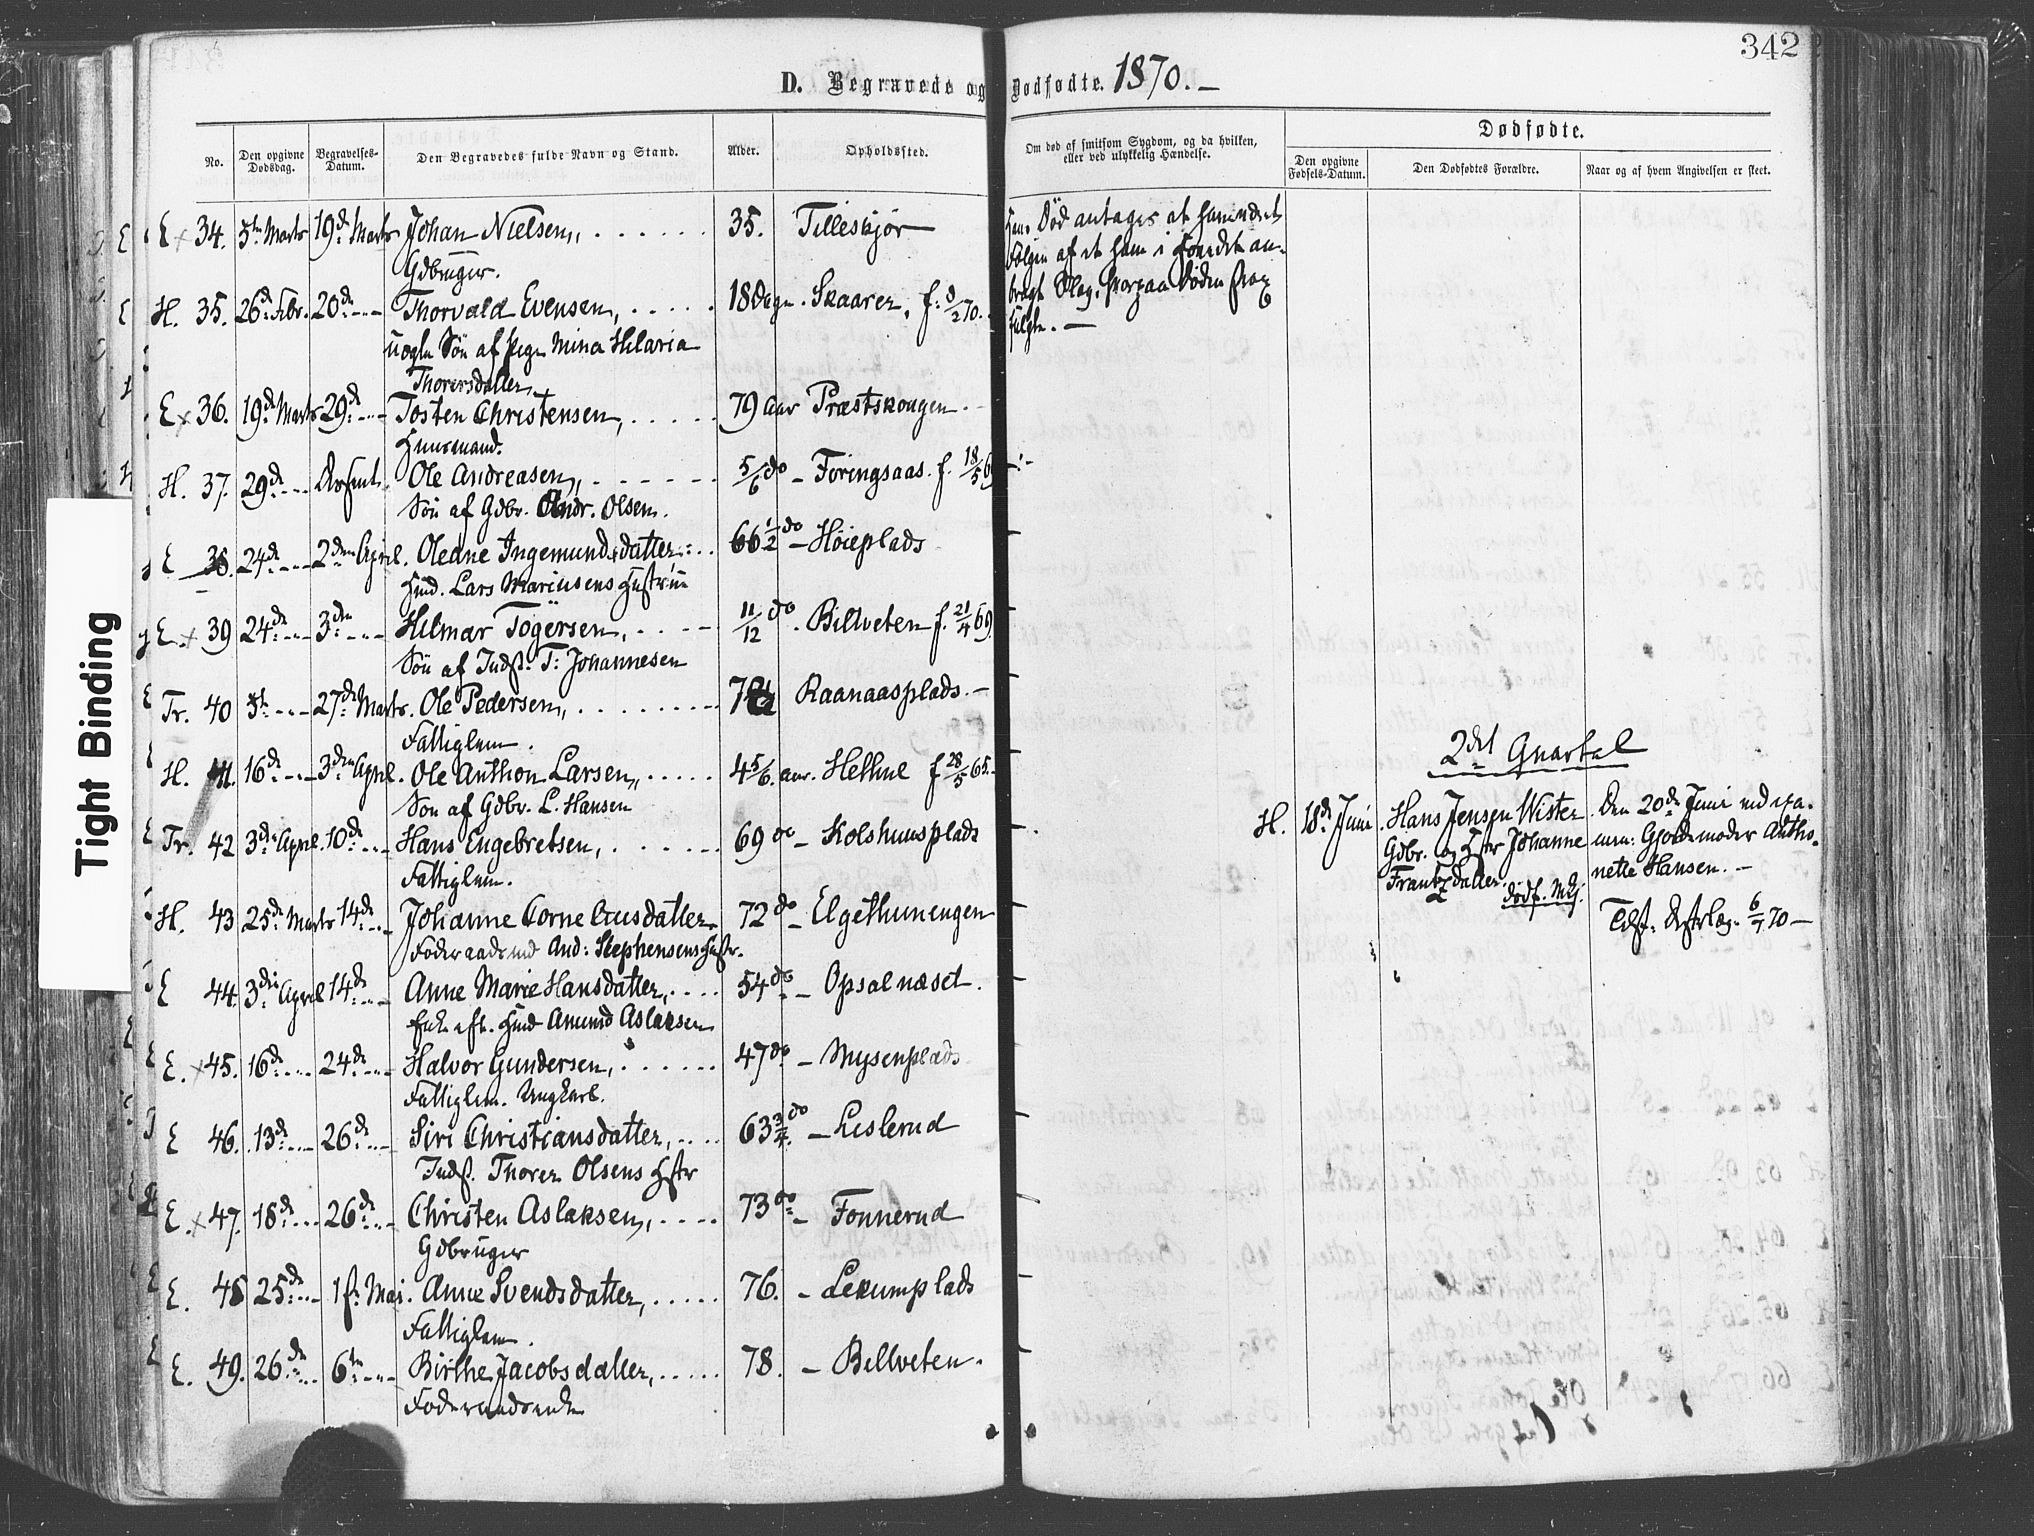 342
D. Begravede og Dødfødte. 1870. —
No.
Den opgivne Dødsdag.
Begravelses-Datum.
Den Begravedes fulde Navn og Stand.
Alder.
Opholdssted.
Om død af smitsom Sygdom, og da hvilken, eller ved ulykkelig Hændelse.
Dødfødte.
Den opgivne Fødsels-Datum.
Den Dødfødtes Forældre.
Naar og af hvem Angivelsen er skeet.
E × 34. 5te Marts 19de Marts Johan Nielsen, 35. Tilleskjør
Gdbruger.
Død antages at
Følgen af et ham i Hovedet an-
bragt Slag, hvorpaa Døden strax
fulgte. —
H. 35. 26de Febr. 20de Thorvald Evensen, 18 Dage. Skaarer, f. 8/2 70.
uægte Søn af Pige Mina Hilaria
Thorersdatter
E × 36. 19de Marts 29de Tosten Christensen, 79 Aar Præstskougen.
Huusmand.
H. 37. 29de Ole Andreasen, 5/6 do – Føringsaas. f. 18/5 69
Søn af Gdbr. Andr. Olsen.
E 38. 24de 2den April. Oleane Ingemundsdatter 66 1/2 do – Høieplads
Hmd. Lars Mariusens Hustrue
E × 39 24de 3die Hilmar Togersen, 11/12 do. Billveten f. 21/4 69
Søn af Indst. T: Johannesen
Tr. 40 5te 27de Marts. Ole Pedersen, Raanaasplads. –
Fattiglem.
H. 41. 16de 3die April. Ole Anthon Larsen, 4 5/6. aar. Hethue f 28/5 65.
Søn af Gdbr. L. Hansen
Tr. 42 3die April 10de Hans Engebretsen, 69 do – Kolshuusplads
Fattiglem.
H. 43 25de Marts 14de Johanne Corneliusdatter 72 do – Elgethunengen
Føderaadsmd And: Stephensens Hustr.
E 44. 3die April 14de Anne Marie Hansdatter, 54 do – Opsalnæset.
Enke eft. Hmd Amund Aslaksen
E. × 45. 16de 24de Halvor Gundersen, 47 do – Mysenplads
Fattiglem. Ungkarl.
E 46. 13de 26de Siri Christiansdatter, 63 3/4 do – Lislerud
Indst. Thorer Olsens Hstr
E × 47. 18de 26de Christen Aslaksen, 73 do – Fonnerud
Gdbruger
E. 48 25de 1ste Mai. Anne Svendsdatter, 76. – Lekumplads
Fattiglem.
E. 49. 26de 6te Birthe Jacobsdatter, 78. – Billveten.
Føderaadsenke
2det Quartal
H. 18de Juni. Hans Jensen Wister
Gdbr. og Hstr Johanne
Frantzdatter.
dødf. Mkj.
Den 20de Juni ved exa-
men: Gjordemoder Antho-
nette Hansen. –
6/7 70 —
Tight Binding